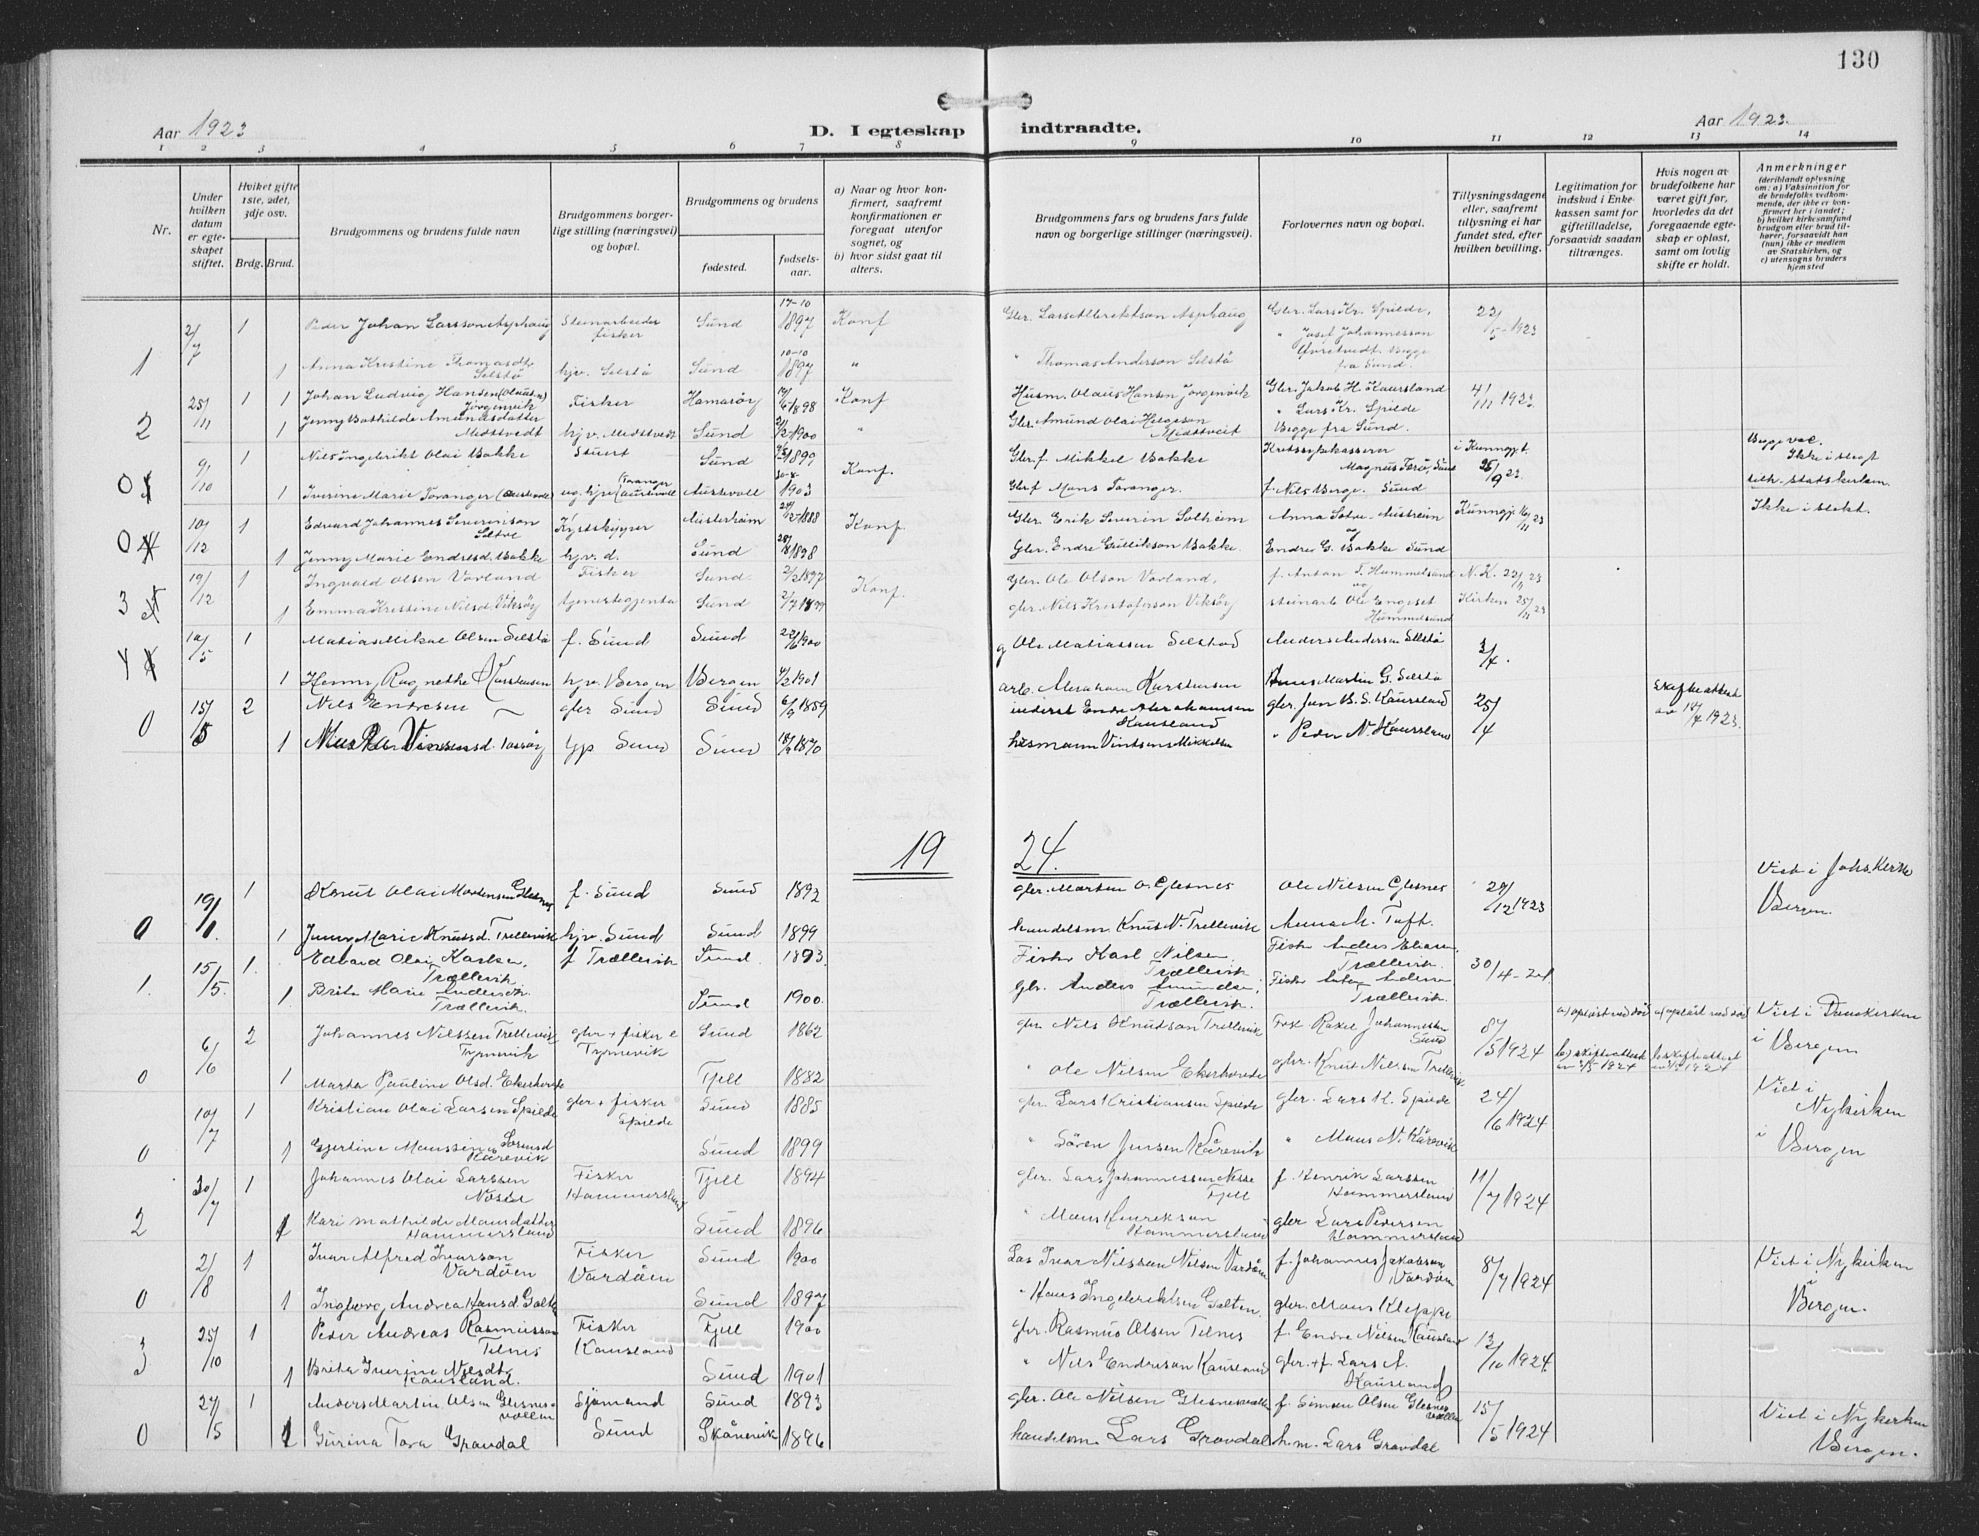 130
Aar 1923
D. I egteskap indtraadte.
Aar 1923.
1 2 3 4 5 6 7 8 9 10 11 12 13 14
Nr.
Under hvilken datum er egteskapet stiftet.
Hviket gifte 1ste, 2det, 3dje osv.
Brdg. Brud.
Brudgommens og brudens fulde navn
Brudgommens borgerlige stilling (næringsvei) og bopæl.
Brudgommens og brudens
fødested.
fødselsaar.
a) Naar og hvor konfirmert, saafremt konfirmationen er foregaat utenfor sognet, og
b) hvor sidst gaat til alters.
Brudgommens fars og brudens fars fulde navn og borgerlige stillinger (næringsvei).
Forlovernes navn og bopæl.
Tillysningsdagene eller, saafremt tillysning ei har fundet sted, efter hvilken bevilling.
Legitimation for indskud i Enkekassen samt for giftetilladelse, forsaavidt saadan tiltrænges.
Hvis nogen av brudefolkene har været gift før, hvorledes da det foregaaende egteskap er opløst, samt om lovlig skifte er holdt.
Anmerkninger
(deriblandt oplysning om: a) Vaksination for de brudefolks vedkommende, der ikke er konfirmert her i landet; b) hvilket kirkesamfund brudgom eller brud tilhører, forsaavidt han (hun) ikke er medlem av Statskirken, og c) utensogns bruders hjemsted
1 2/7 1 Peder Johan Larsson Asphaug Stenarbeider fisker Sund 17-10 1897 Konf Gbr. Lars Albriktson Asphaug Gbr. Lars Kr. Spilde, 22/5-1923
1 Anna Kristine Thomasdt. Selstø hjv. Selstø Sund 10-10 1897 " " Thomas Anderson Selstø " Josef Johannesson Begge fra Sund.
2 25/11 1 1 Johan Ludvig Hansen (Olausen) Jørgenvik Fisker Hamarøy 1898 Konf Husm. Olaus Hansen Jørgenvik Gbr. Jakob H. Kaursland 4/11 1923
1 Jenny Bathilde Amundsdatter Midtsvedt hjv. Midtsvedt Sund 1900 " Gbr. Amund Olai Helgeson Midtsveit " Lars Kr. Spilde Begge fra Sund.
0 9/10 1 Nils Ingebrikt Olai Bakke Stuert Sund 1899 Konf. Gbr. f. Mikkel Bakke Kredssykekasserer Magnus Terø, Sund i Kunngjort 25/9 23 Begge vac. Ikke i slegt
1 Iverine Marie Toranger (Austevoll) ug. hjv. Toranger (Austevoll) Austevoll 1903 Gbr f Mons Toranger. f. Nils Berge. Sund
0 10/12 1 Edvard Johannes Severinson Solve Kystskipper Austerheim 1888 Konf. Gbr. Erik Severin Solheim Anna Solve. Austreim og Kunngj. 16/11 23 Ikke i slekt.
1 Jenny Marie Endresd. Bakke hjv. d. Sund 1898 Gbr. Endre Gullikson Bakke. Endre G. Bakke Sund
3 19/12 1 Ingvald Olsen Vorland Fisker Sund 1897 Konf. Gbr. Ole Olson Vorland, f. Anton T. Hummelsund og N.K. 22/11 23
1 Emma Kristine Nilsd. Viksøy tjenestegjenta Sund 2/7 1899 gbr. Nils Kristoferson Viksøy steinarb. Ole Engeset Hummelsund Kirken 25/11 23
4 10/5 1 Matias Mikal Olsen Selstø f. Sund Sund 22/6 1900 g Ole Matiassen Selstød Anders Andersen Selstø 3/4.
1 Henny Ragnethe Karstensen hjv. Bergen Bergen 1901 arb. Abraham Karstensen Martin G. Selstø
0 15/5 2 Nils Endresen gbr Sund Sund 6/9 1859 inderst Endre Abrahamsen Kausland gbr. Jon B. S. Kaursland 25/4 Skifteattest av 18/4 1923.
1 Vinsensd. Tassøy Sund Sund 18/9 1870 husmann Vintsens Mikkelsen " Peder N. Kaursland
19 24.
0 19/1. 1 Knut Olai Mortensen Glesnes f. Sund Sund 1892 gbr. Morten O. Glesnes Ole Nilsen Glesnes 29/12 1923 Viet i Johs. Kirke Bergen.
1 Jenny Marie Knutsd. Trellevik hjv. Sund Sund 1899 handelsm. Knut N. Trellevik Anna M. Toft.
1. 15/5. 1. Edvard Olai Karlsen, Trællevik f Trællevik Sund. 1893. Fisker Karl Nilsen, Trællevik Fisker Anders Eliasen, Trællevik. 30/4-24
1 Brita Marie Andersdt. Trællevik. Sund 1900. Gbr. Anders Amundsen, Trællevik. Fisker Trællevik.
0 6/6 2 Johannes Nilssen Trellevik Tyrnevik gbr + fisker Tyrnevik Sund 1862 gbr Nils Knudson Trellevik Johannesen Sund 8/5 1924 a) opløst ved død a) opløst ved død Viet i Domkirken i Bergen
1 Marta Pauline Olsd. Ekerhovde Fjell 1882 " Ole Nilsen Ekerhovde gbr. Knut Nilssen Trellevik b) skifteattest av 2/5 1924 b) skifteattest av 2/5 1924
0 10/7 1 Kristian Olai Larsen Spilde gbr + fisker Spilde Sund 1885 gbr. Lars Kristiansen Spilde gbr. Lars K. Spilde 24/6 1924 Viet i Nykirken i Bergen
1 Gjertine Monssine Sørensd Kårevik Sund 1899 " Sören Jensen Kårevik " Mons N. Kårevik
2 30/7 1 Johannes Olai Larssen Nesse Fisker Hammersland Fjell 1894 gbr. Lars Johannessen Nesse Fjell f. Henrik Larssen Hammersland 11/7 1924
1 Kari Mathilde Monsdatter Hammersland Sund 1896 " Mons Henrikson Hammersland gbr Lars Pedersen Hammersland
0 2/8 1 Ivar Alfred Ivarson Vardøen Fisker Vardøen Sund 1900 Los Ivar Nilssen Vardøen f. Johannes Jakobson Vardøen 8/7 1924 Viet i Nykirken i Bergen.
1 Ingborg Andrea Hansd. Golten Sund 1897 " Hans Ingebriktsen Golten gbr. Mons Kleppe
3 25/10 1 Peder Andreas Rasmusson Telnes Fisker Kausland Fjell 1900 gbr. Rasmus Olsen Telnes f. Endre Nilsen Kausland 12/10 1924
1 Brita Iverine Nilsdt. Kausland. Sund 1901 " Nils Endreson Kausland gbr. + f. Lars A. Kausland
0 27/5 1 Anders Martin Olsen Glesnesvollen Sjömand Sund Sund 1893 gbr. Ole Nilsen Glesnesvollen f. Simon Olsen Glesnesvollen 15/5 1924 Viet i Nykirken Bergen.
1 Gurina Tora Gravdal Skånevik 1896 handelsm. Lars Gravdal h.m. Lars Gravdal